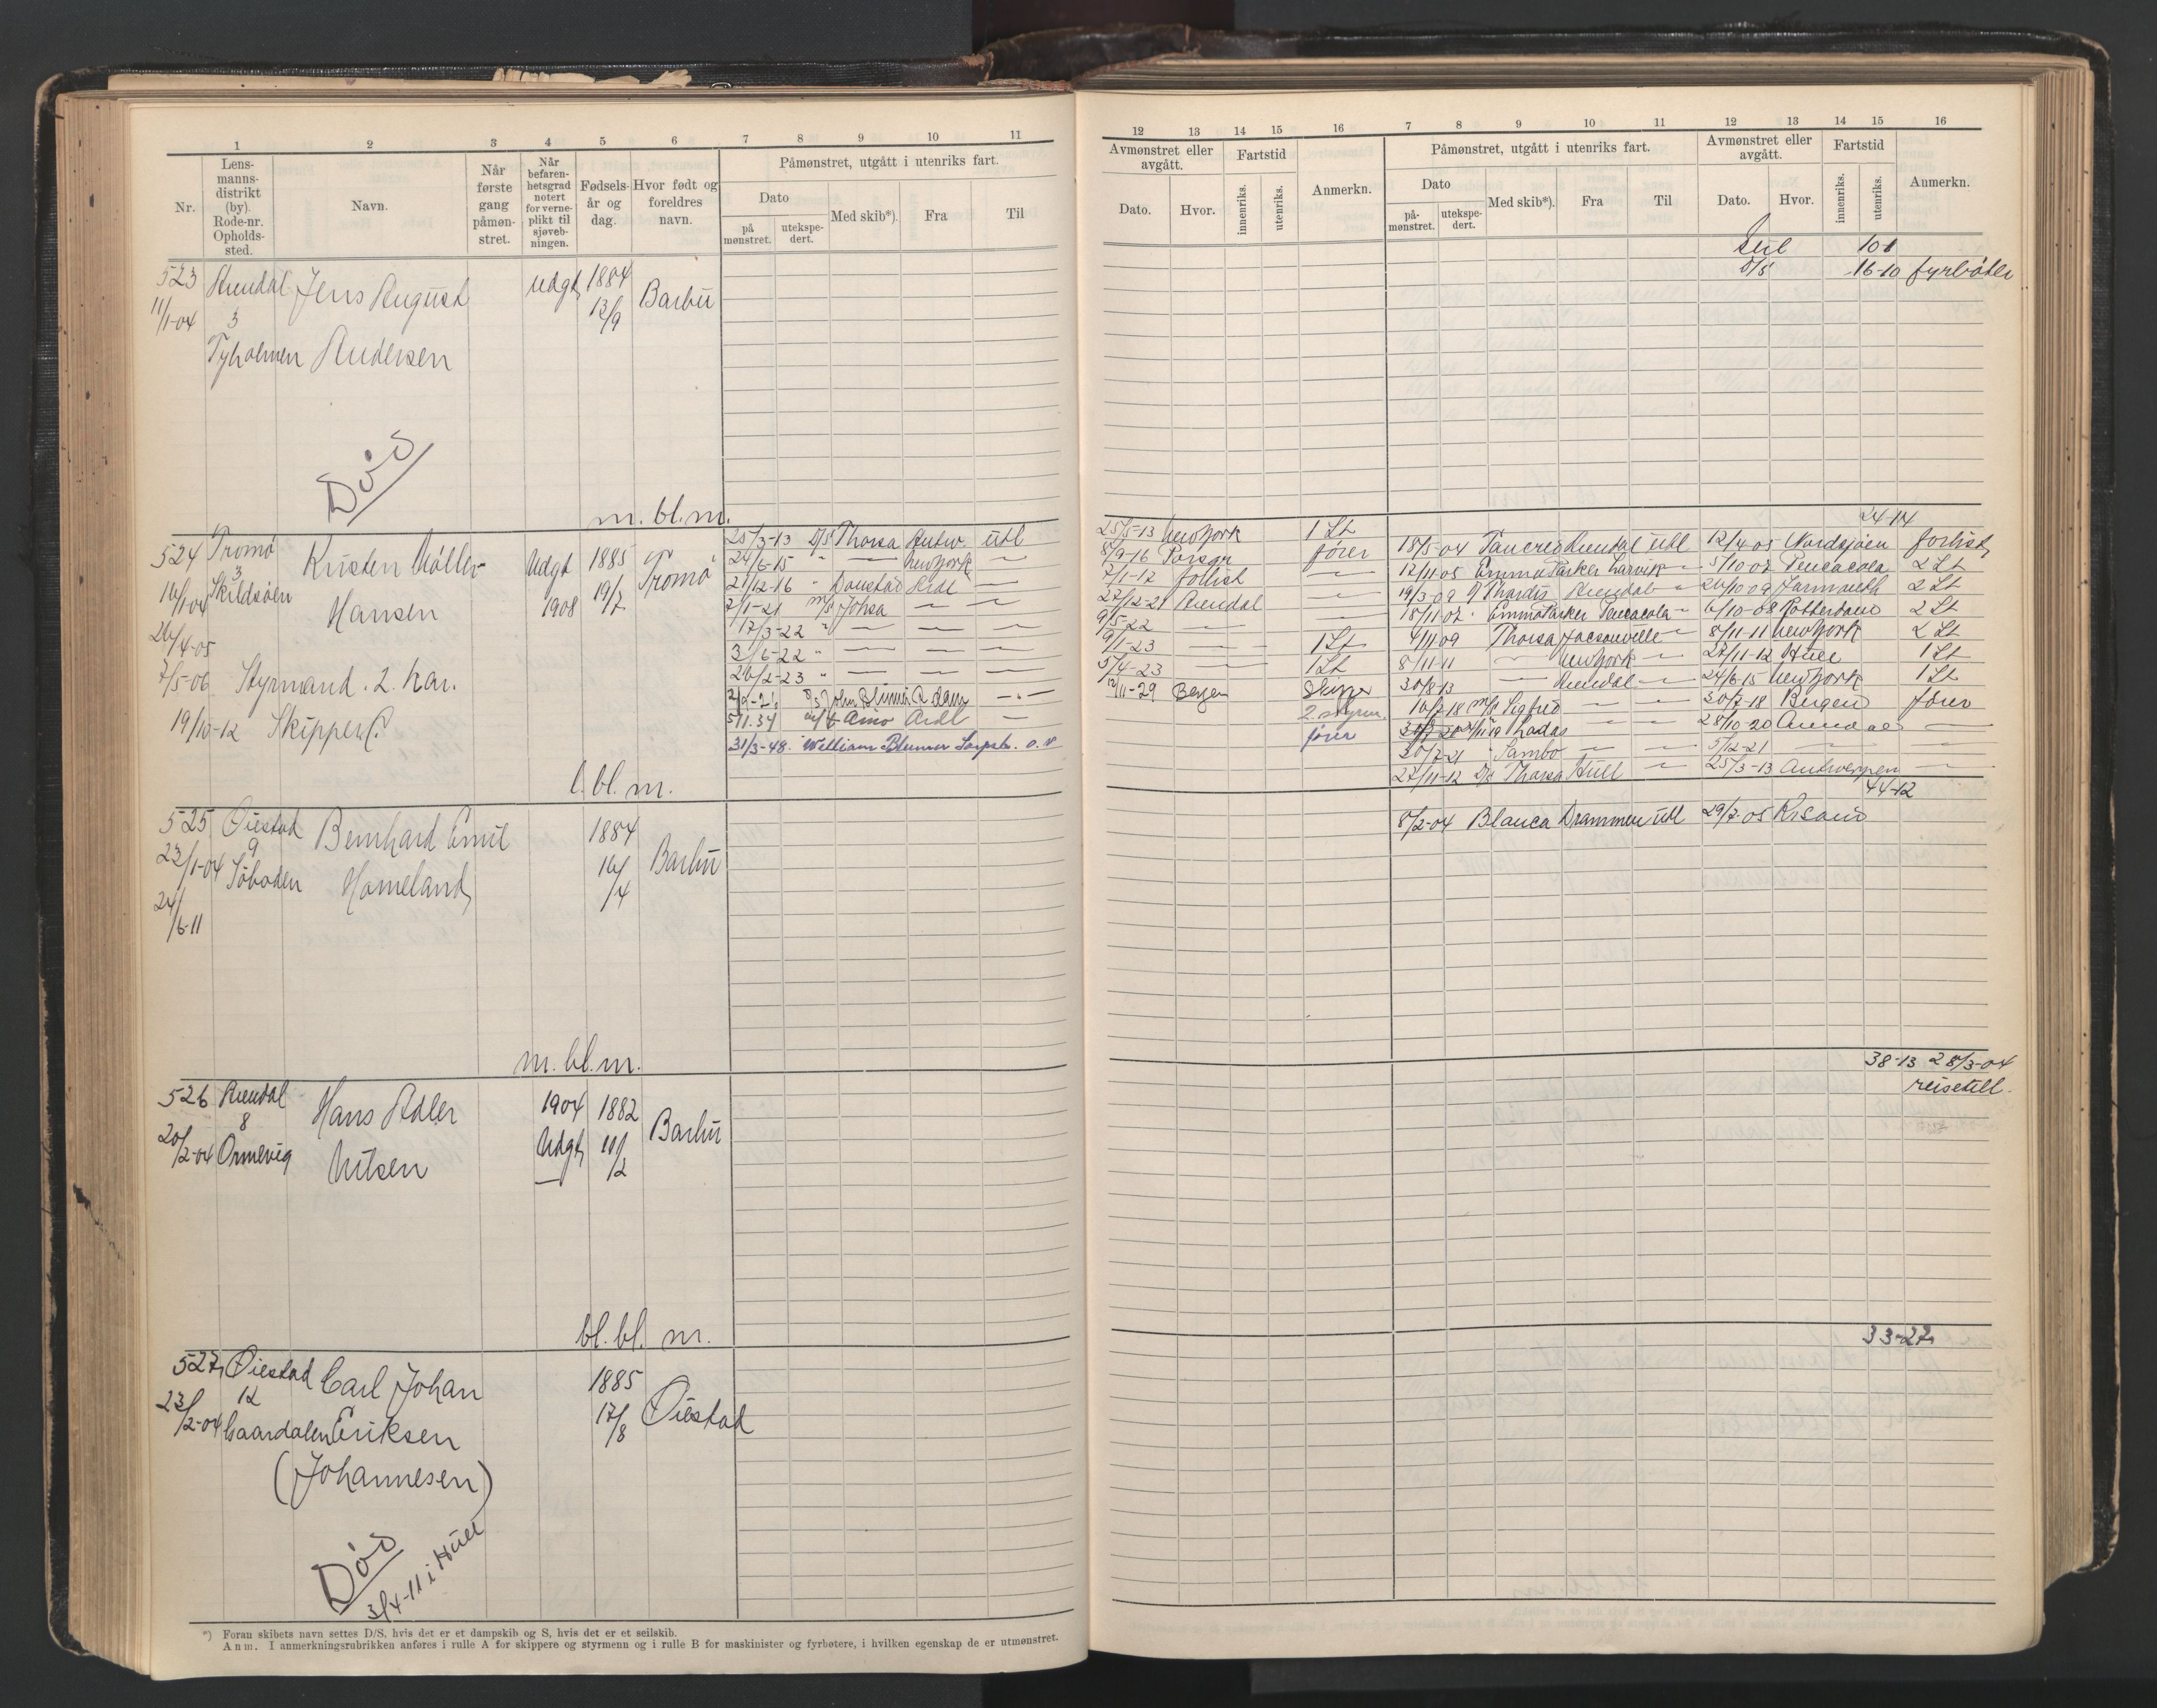 1 2 3 4 5 6 7 8 9 10 11
Nr.
Lens-
manns-
distrikt
(by).
Rode-nr.
Opholds-
sted.
Navn.
Når
første
gang
påmøn-
stret.
Når
befaren-
hetsgrad
notert
for verne-
plikt til
sjøveb-
ningen.
Fødsels-
år og
dag.
Hvor født og
foreldres
navn.
Påmønstret, utgått i utenriks fart.
Dato
på
mønstret.
utekspe-
dert.
Med skib*).
Fra
Til
523 Arendal Jens August Udgt 1884 Barbu
11/1-04 3 13/9
Tyholmen Andersen
Død
m. bl. m.
524 Tromø Kristen Møller Udgt 1885 Tromø
16/1-04 3 Skilsøen Hansen 1908 19/7
26/4-05
7/5-06 Styrmand. 2. har.
19/10-12 Skipper C.
25/3-13 D/S Thorsa Antw. Utl
24/6-15 " — New York —
21/12-16 " Ardl —
7/1-21 m/s Johsa — —
17/3-22 " — — —
3/6-22 " — — —
26/2-23 " — — —
51 1.34 Arno Ardl —
31/3-48. William Blumer Sarpsb. o. v
l. bl. m.
525 Øiestad Bernhard Emil 1884 Barbu
23/1-04 9 16/4
Homeland
24/6-11
m. bl. m.
526 Arendal Hans Adler 1904 1882 Barbu
20/2-04 8 Ormevig Nilsen Udgt 10/2
bl. bl. m.
527 Øiestad Carl Johan 1885 Øiestad
23/2-04 12 Eriksen 17/8
(Johannesen)
Død
3/4-11 i Hull
*) Foran skibets navn settes D/S, hvis det er et dampskib og S, hvis det er et seilskib.
Anm. I anmerkningsrubrikken anføres i rulle A for skippere og styrmenn og i rulle B for maskinister og fyrbøtere, i hvilken egenskap de er utmønstret.
12 13 14 15 16 7 8 9 10 11 12 13 14 15 16
Avmønstret eller
avgått.
Dato.
Hvor.
Fartstid
innenriks.
utenriks.
Anmerkn.
Påmønstret, utgått i utenriks fart.
Dato
på-
mønstret.
utekspe-
dert.
Med skib*).
Fra
Til
Avmønstret eller
avgått.
Dato.
Hvor.
Fartstid
innenriks.
utenriks.
Anmerkn.
Seil 101
D/S 16-10 fyrbøter
24-14
25/3-13 New York 1 St
8/9-16 Porsgr fører
7/1-17 forlist —
27/12-21 Arendal —
9/5-22 — —
9/1-23 — — 1 St
5/4-23 — — 1 St
12/11-29 Bergen Skipper
2. styrm.
fører
18/5-04 Tancred Arendal Utl 12/4 05 Nordsjøen forlist
12/11 05 Emma Parker Larvik — 5/10 07 Pensacola 2 St
19/3-09 Thordis Arendal — 20/10 09 Jarmouth 2 St
18/11 07 " Emma Parker Pensacola — 6/10-08 Rotterdam 2 St
4/11 09 Thorsa Jacsonville — 8/11-11 New York 2 St
8/11-11 — New York — 27/11-12 Hull 1 St
30/8-13 — Arendal — 24/6-15 New York 1 St
10/7-18 m/s Sigfred — — 30/7-18 Bergen fører
Ladas — — 28/10-20 Arendal —
30/7-21 " Sambo — — 5/12-21 — —
27/11-12 D/S Thorsa Hull — 25/3-13 Antwerpen —
44-12
8/2-04 Blanca Drammen Utl 29/7-05
38-13 28/3-04
reisetill.
33-27